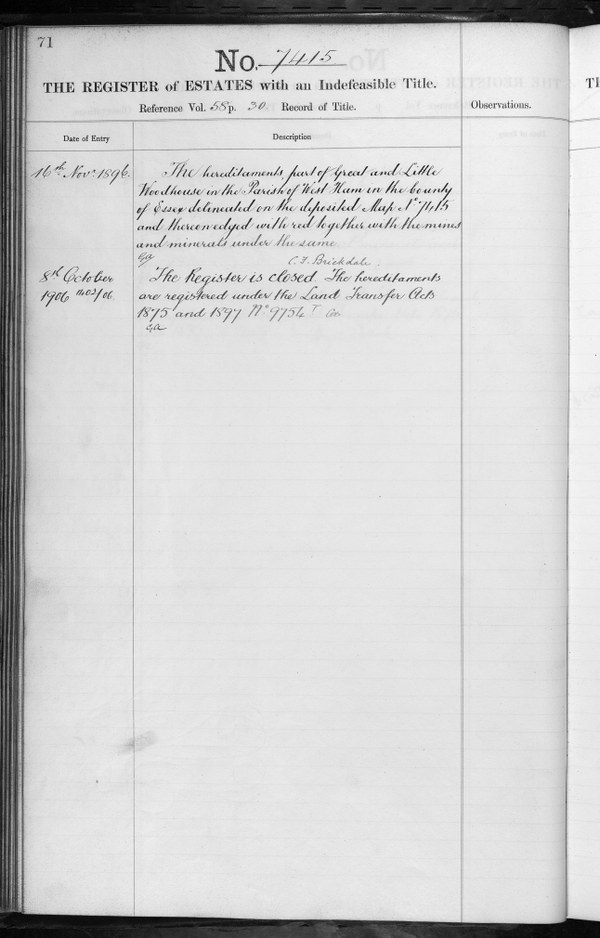 71
No. 7415
THE REGISTER of ESTATES with an Indefeasible Title.
Reference Vol. 58 p. 30. Record of Title.
Observations.
Date of Entry
Description
16th Novr 1896.
The hereditaments, part of Great and Little
Woodhouse in the Parish of West Ham in the County
of Essex delineated on the deposited Map No 7415
and thereon edged with red together with the mines
and minerals under the same
C. F. Brickdale.
8th October
1906
The Register is closed The hereditaments
are registered under the Land Transfer Acts
1875 and 1897 No 9754